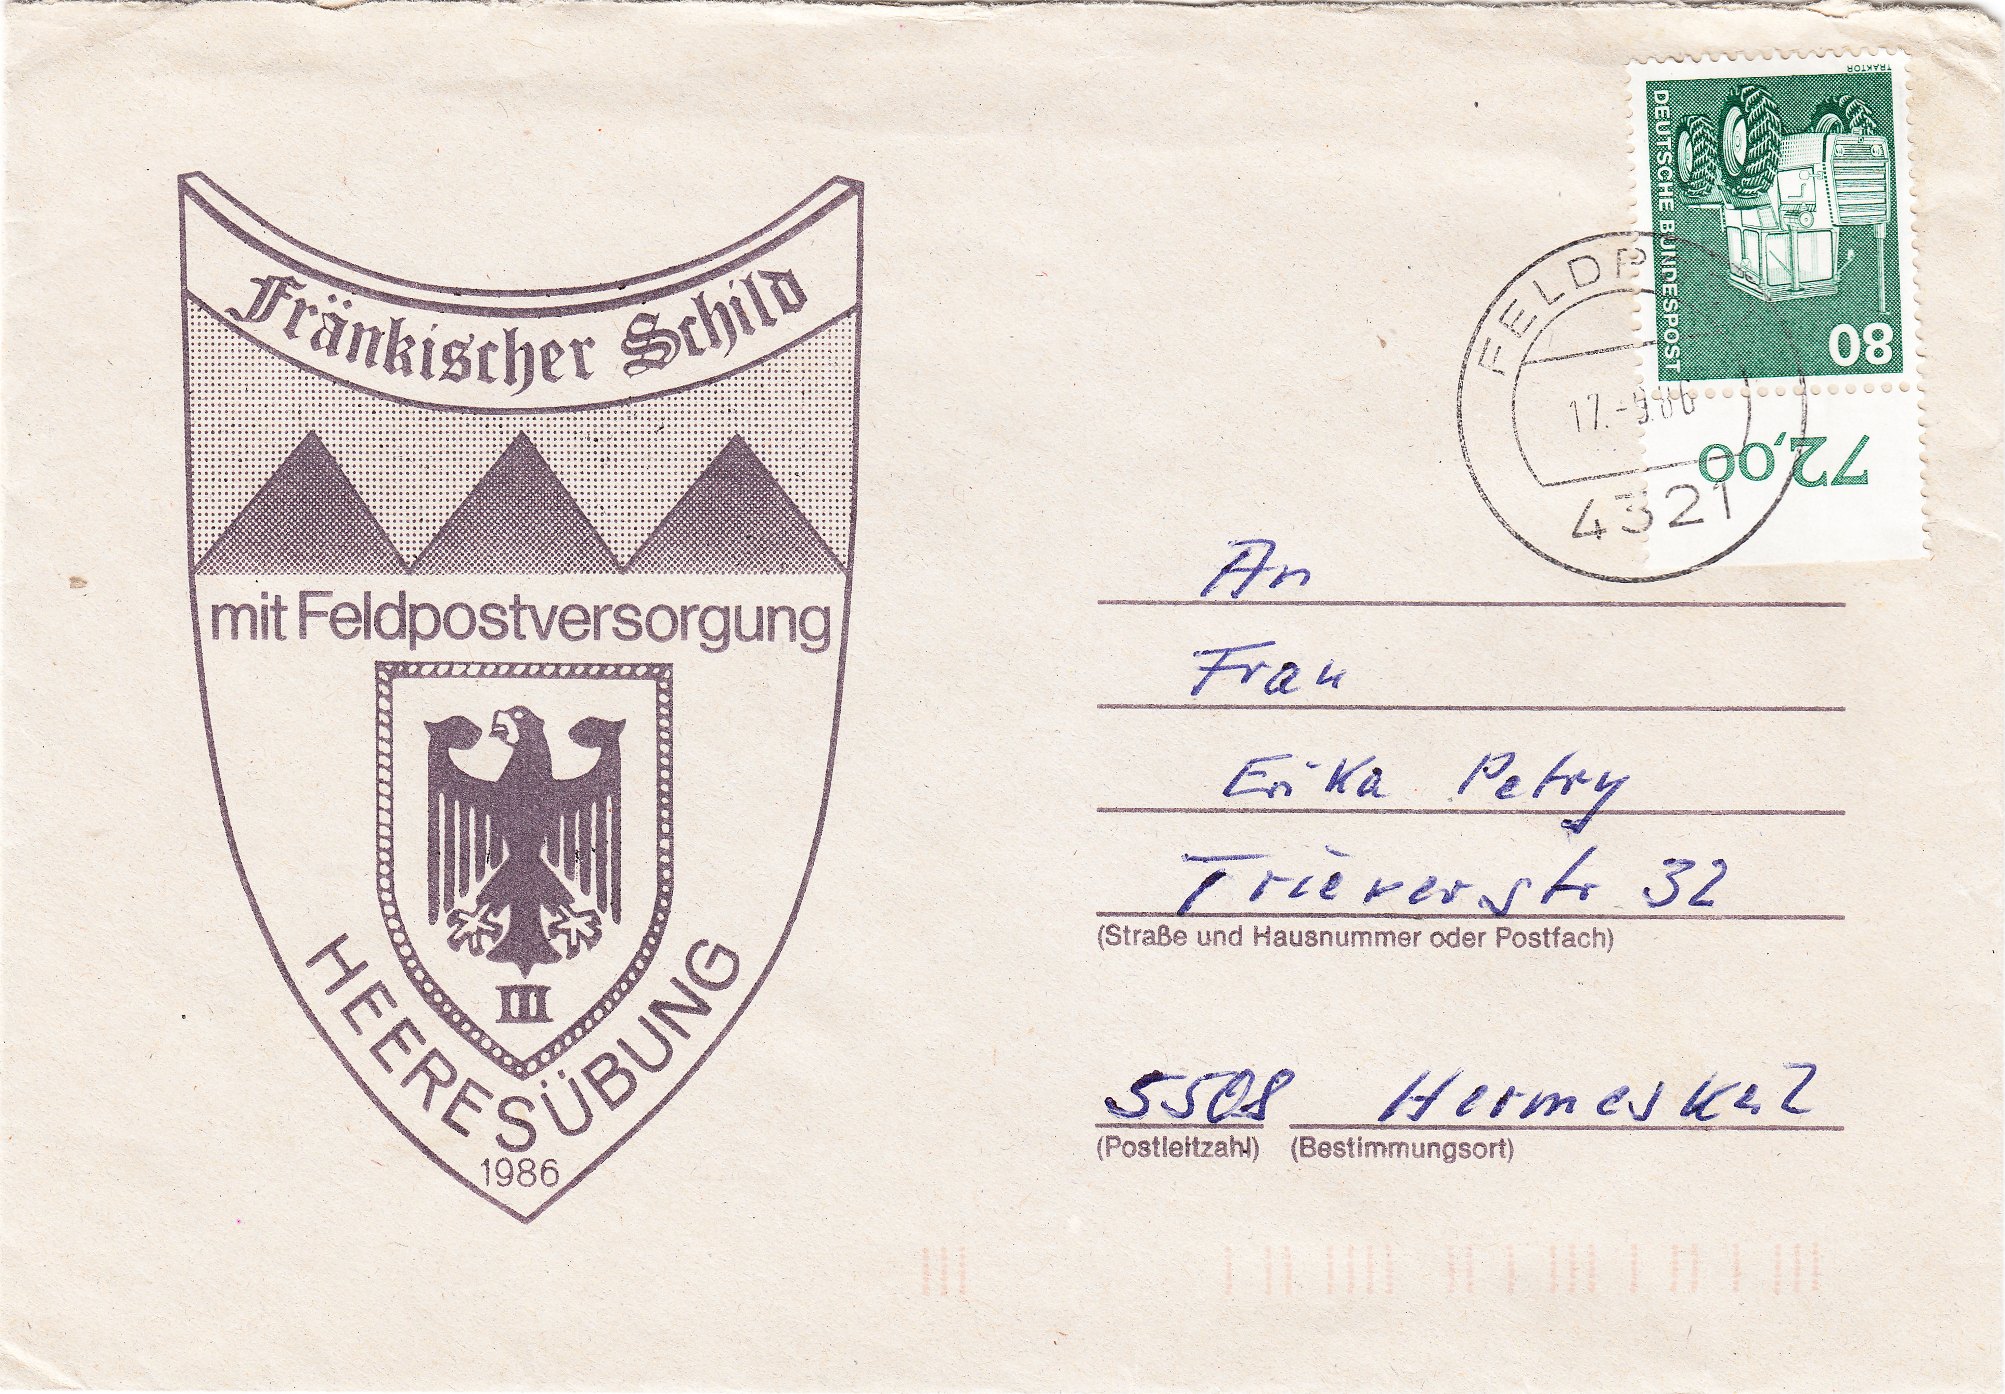 Fränkischer Schild
mit Feldpostversorgung
III
HEERESÜBUNG
1986
TRAKTOR
DEUTSCHE BUNDESPOST
80
72,00
17.-9.86
4321
An
Frau
Erika Petry
Triererstr 32
(Straße und Hausnummer oder Postfach)
5508 Hermeskeil
(Postleitzahl) (Bestimmungsort)